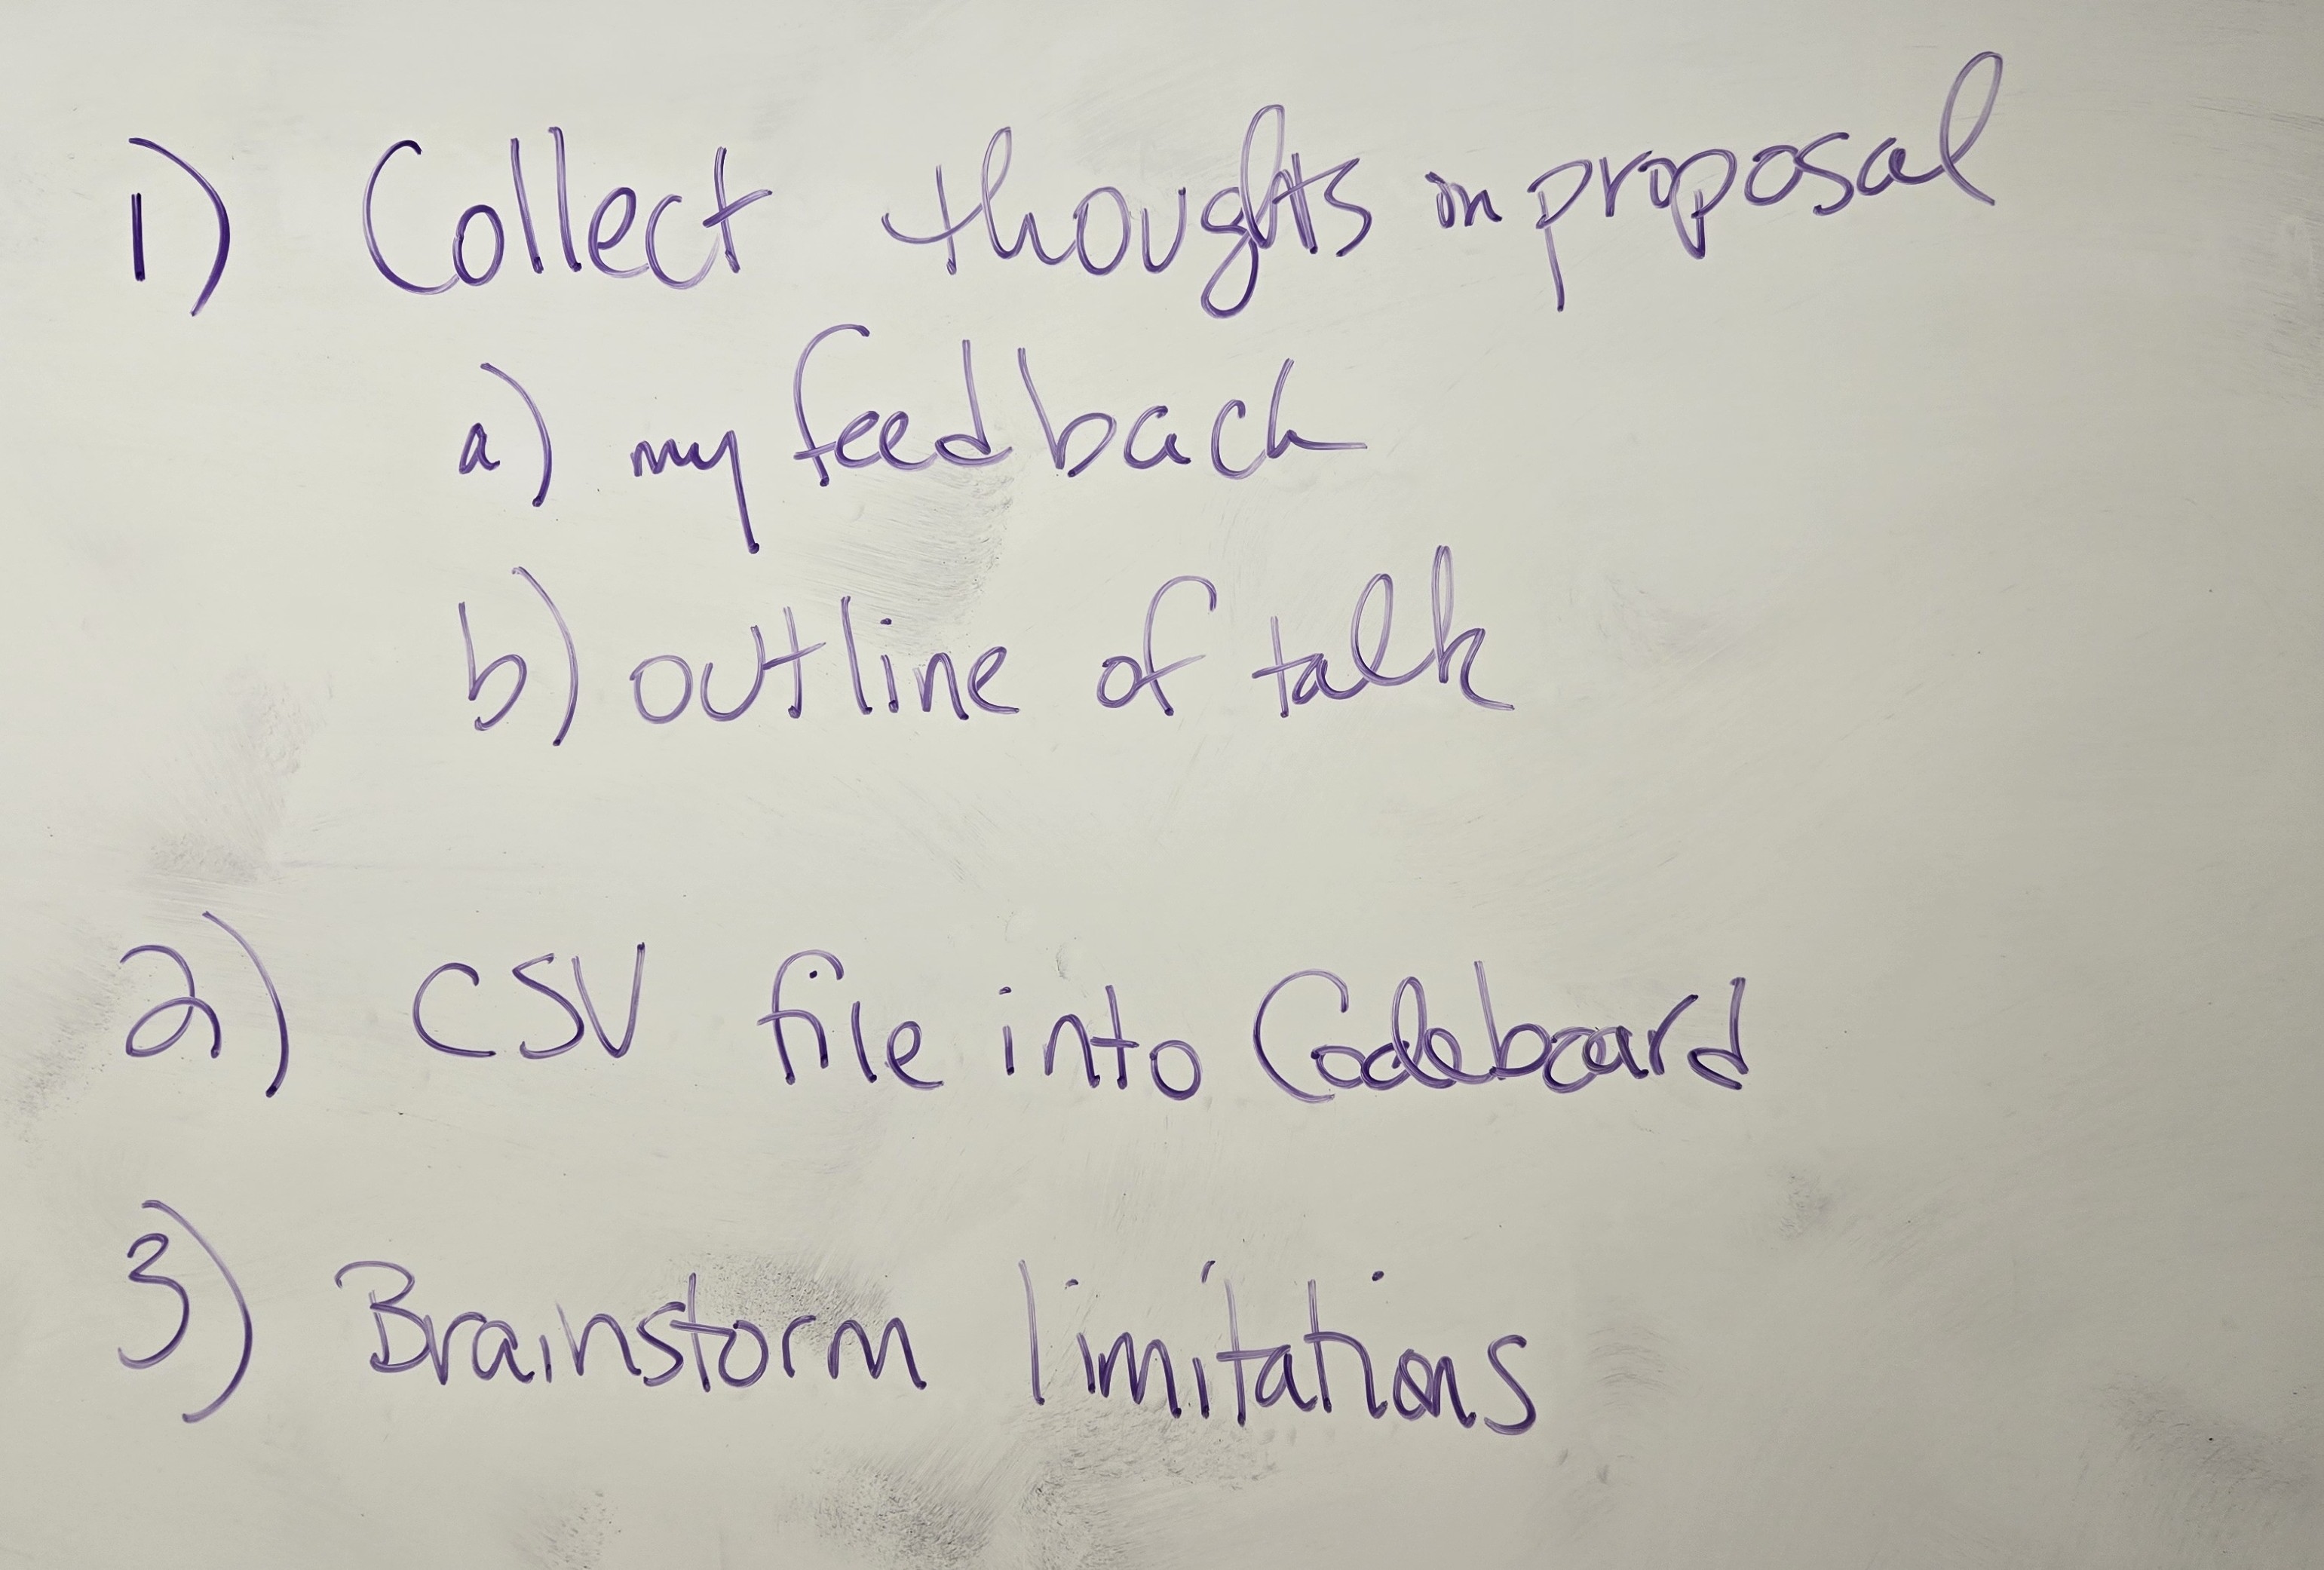 1) Collect thoughts on proposal
a) my feedback
b) outline of talk
2) CSV file into Codeboard
3) Brainstorm limitations